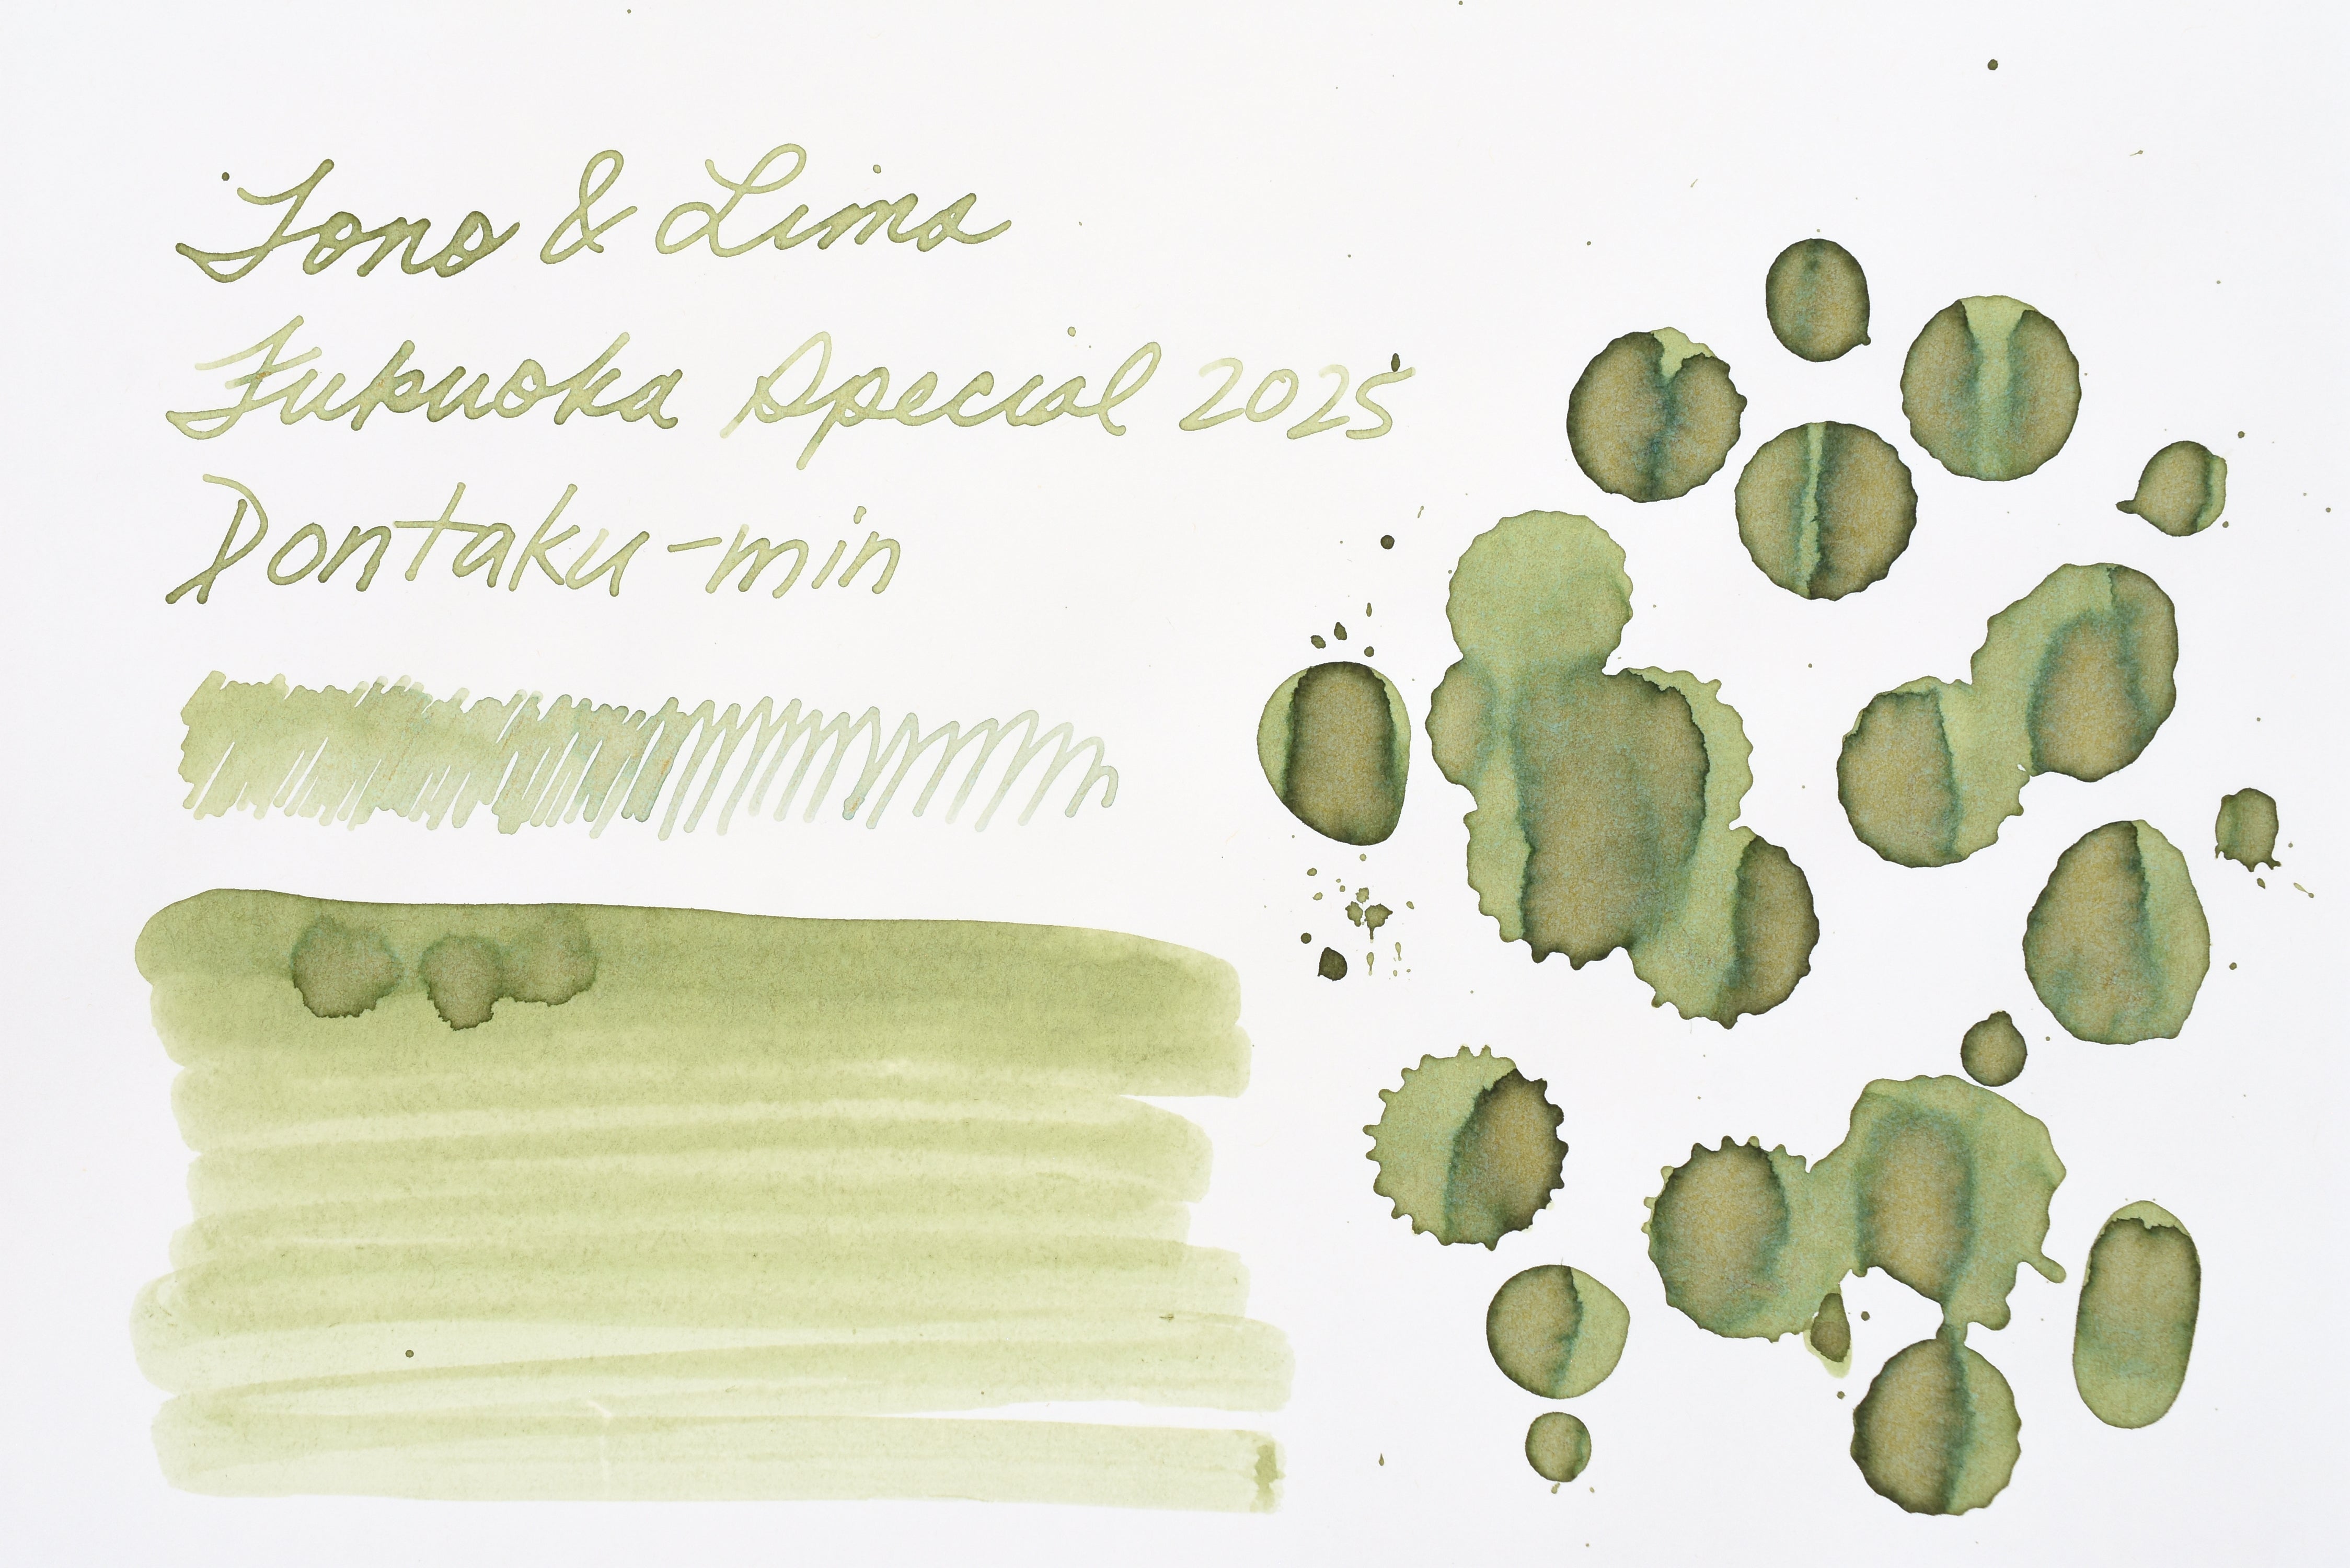 Tono & Lims
Fukuoka Special 2025
Dontaku-min